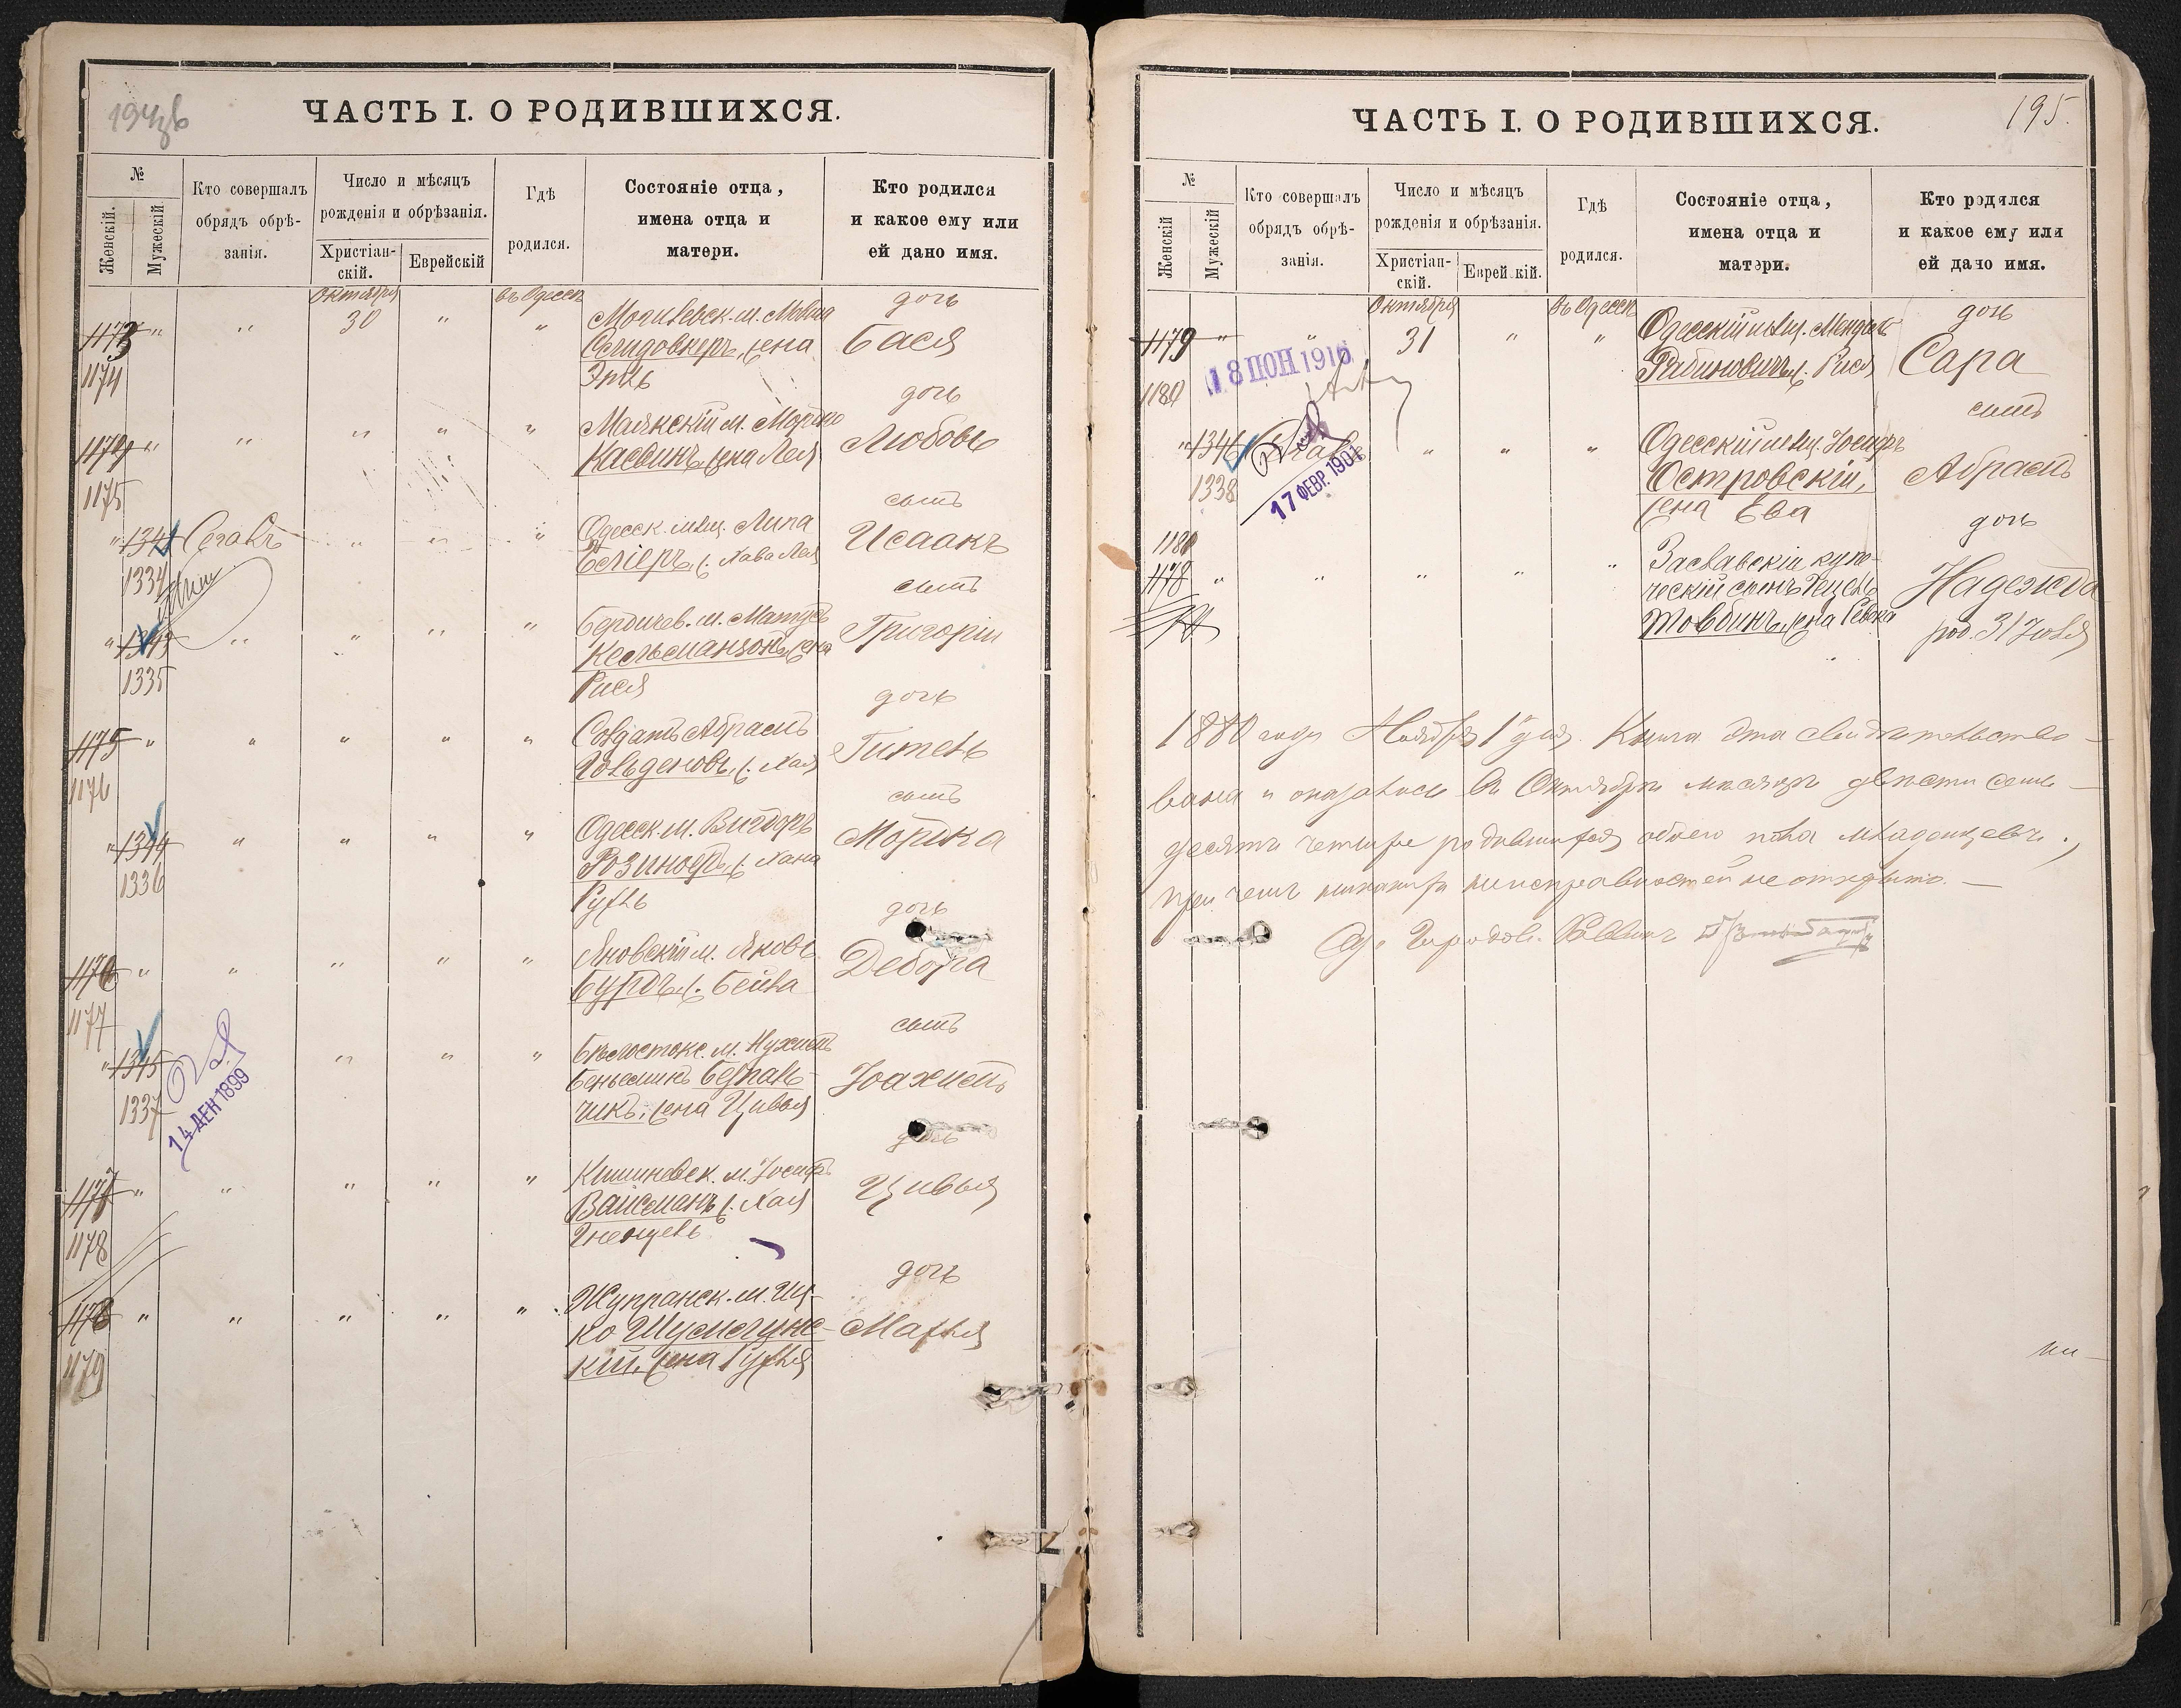 194 об
ЧАСТЬ I. О РОДИВШИХСЯ.
№
Женскій.
Мужескій
Кто совершалъ
обрядъ обрѣ-
занія.
Число и мѣсяцъ
рожденія и обрѣзанія.
Христіан-
скій.
Еврейскій
Гдѣ
родился.
Состояніе отца,
имена отца и
матери.
Кто родился
и какое ему или
ей дано имя.
Октября
въ Одессѣ
1173 " " 30 " "
1174
Могилевск. м.
жена
Этль
дочь
Бася
1174 " " " " "
1175
Маякскій м. Мордко
Касвинъ, жена Лея
дочь
Любовь
" 1342 Сегалъ " " "
1334
Одесск. мѣщ. Липа
Беліеръ, ж. Хава Лея
сынъ
Исаакъ
" 1343 " " " "
1335
Бердичев. м. Матусъ
Кесельманзонъ, жена
Рися
сынъ
Григорій
1175 " " " " "
1176
Солдатъ Абрамъ
Гольденовъ, ж. Хая
дочь
Гитель
" 1344 " " " "
1336
Одесск. м. Вигдоръ
Розиноеръ, ж. Хана
Рухль
сынъ
Мордка
1176 " " " " "
1177
Яновскій м. Яковъ
Бурдъ, ж. Бейла
дочь
Дебора
" 1345 " " "
1337
14 ДЕК 1899
Бѣлостокс. м. Нухимъ
Беньеминъ
чикъ, жена Цивья
сынъ
Іоахимъ
1177 " " " " "
1178
Кишиневск. м. Іосифъ
Вайсманъ, ж. Хая
дочь
Цивья
1178 " " " " "
1179
Жупранск. м. Иц-
ко Шумсгунс-
кій, жена Рухля
дочь
Махля
195.
ЧАСТЬ I. О РОДИВШИХСЯ.
№
Женскій
Мужескій
Кто совершалъ
обрядъ обрѣ-
занія.
Число и мѣсяцъ
рожденія и обрѣзанія.
Христіан-
скій.
Еврейскій.
Гдѣ
родился.
Состояніе отца,
имена отца и
матери.
Кто родился
и какое ему или
ей дано имя.
Октября
въ Одессѣ
1179 " " 31 " "
1180
18 ІЮН 1916
Одесскій мѣщ. Мендель
Рабиновичъ, ж. Рися
дочь
Сара
" 1346 Сегалъ " " "
1338
17 ФЕВР. 1901
Одесскій мѣщ. Іосифъ
Островскій,
жена Ева
сынъ
Абрамъ
1181
1178 " " " " "
Заславскій купе-
ческій сынъ
Товбинъ, жена Ревека
дочь
Надежда
род. 31 Іюля
1880 года Ноября 1 дня. Книга эта свидѣтельство-
вана и оказалось въ Октябрѣ мѣсяцѣ двѣсти семь-
десятъ четыре родившихся обоего пола младенцевъ,
при чемъ никакихъ неисправностей не открыто. —
Од. Городов. Раввинъ